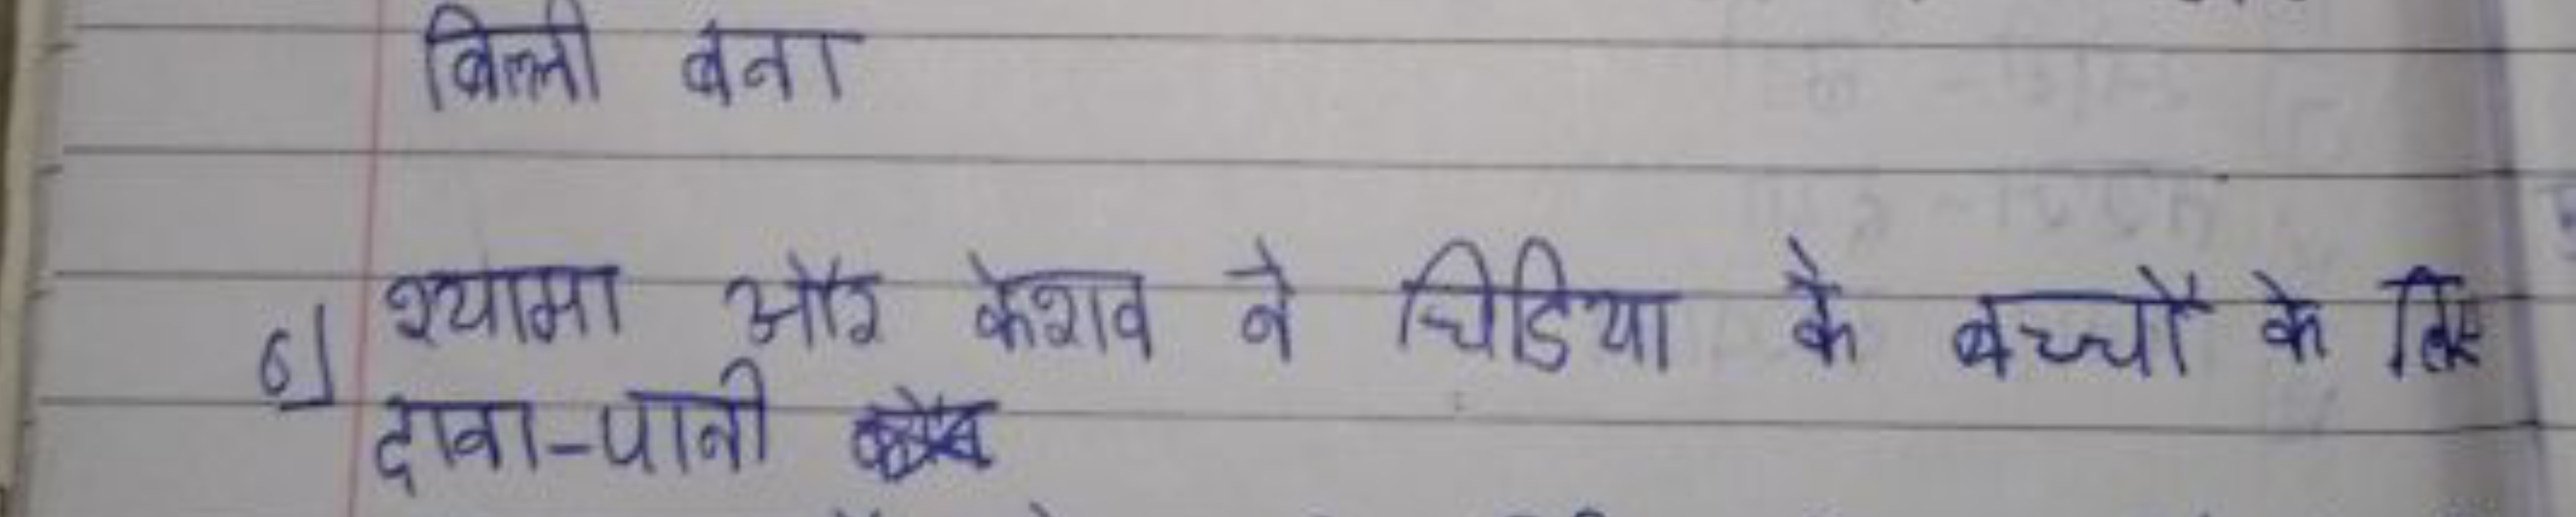 बिल्ली बना
6) श्यामा और केशव ने चिडिया के बच्चों के लिए
दाना-पानी